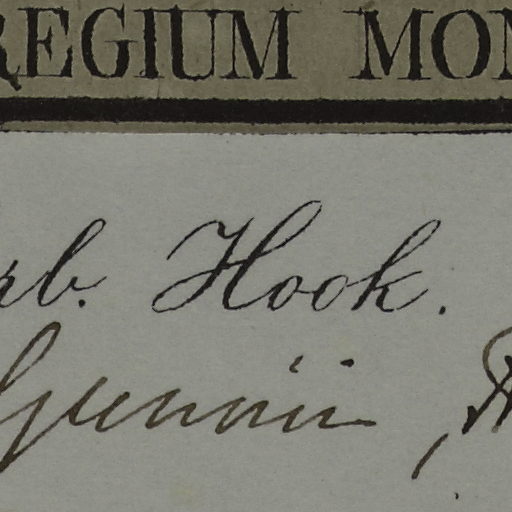 REGIUM MON
rb. Hook.
Gunnii,